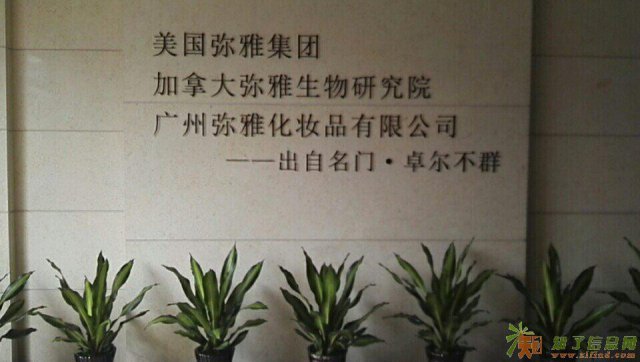 美国弥雅集团
加拿大弥雅生物研究院
广州弥雅化妆品有限公司
——出自名门·卓尔不群